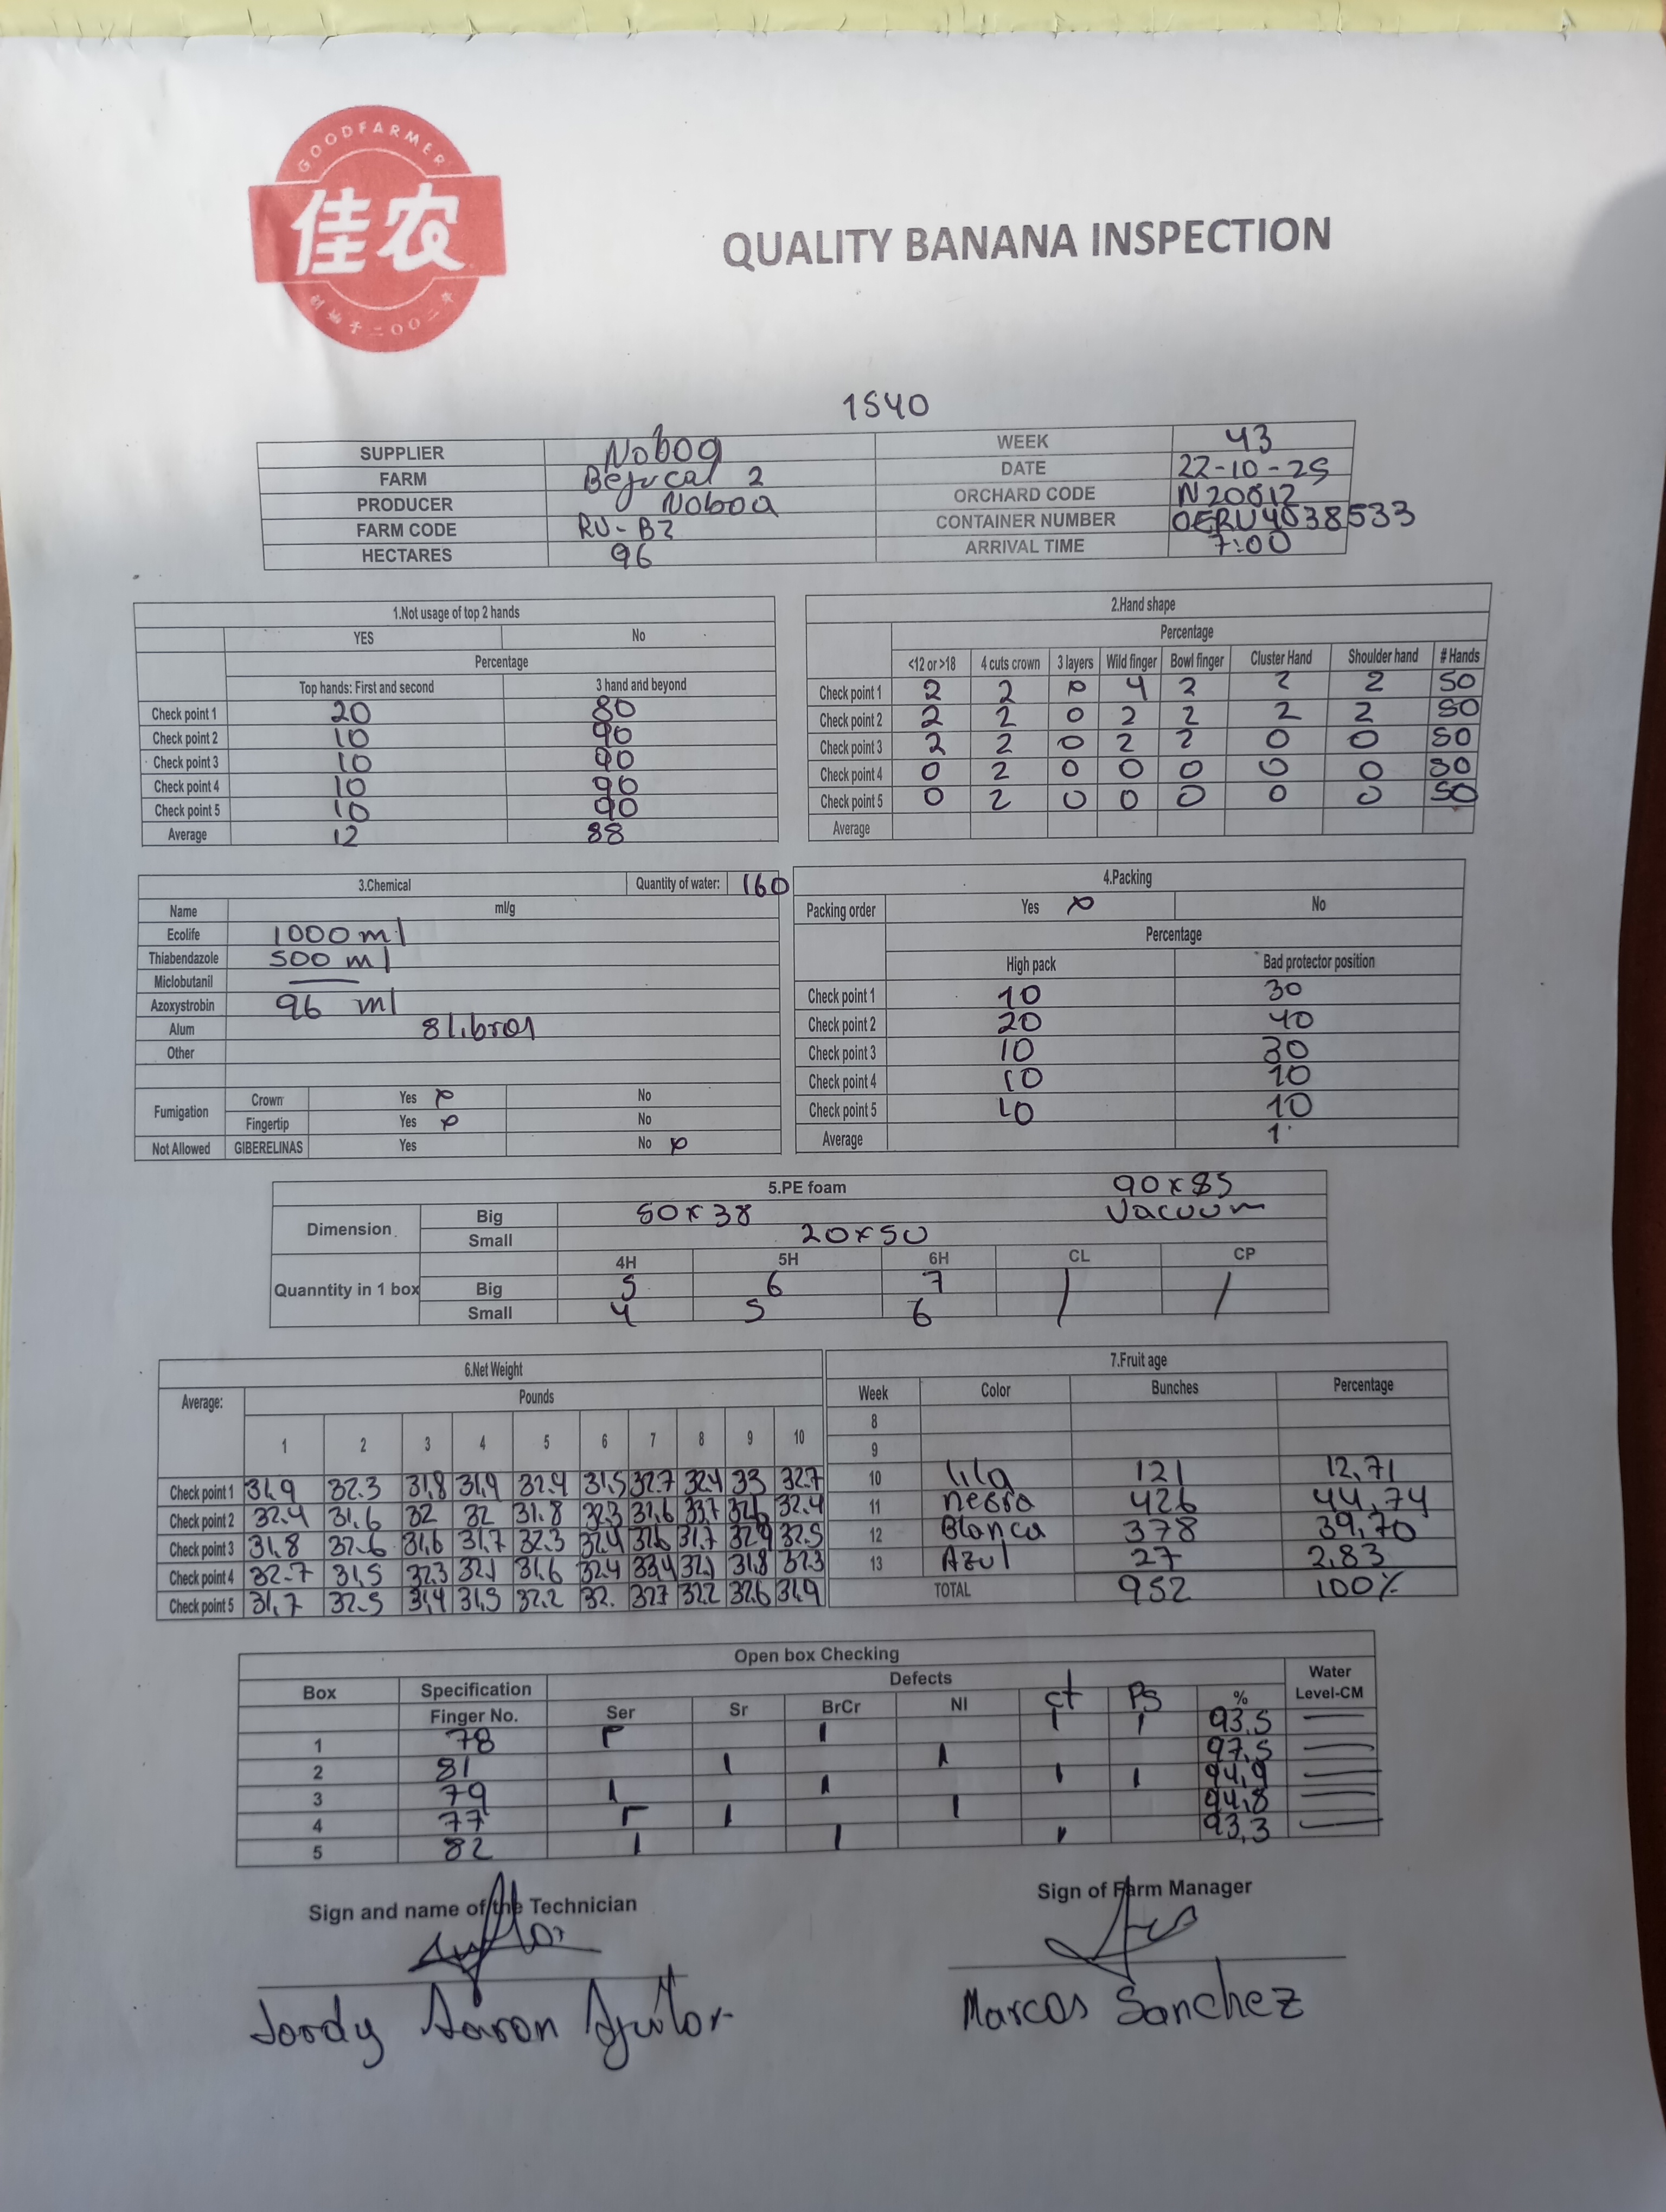 GOODFARMER
佳农
创始于二〇〇二年
QUALITY BANANA INSPECTION
1540
SUPPLIER Noboa WEEK 43
FARM Bejucal 2 DATE 22-10-25
PRODUCER Noboa ORCHARD CODE N20012
FARM CODE RU-B2 CONTAINER NUMBER OERU4038533
HECTARES 96 ARRIVAL TIME 7:00
1.Not usage of top 2 hands
YES No
Percentage
Top hands: First and second 3 hand and beyond
Check point 1 20 80
Check point 2 10 90
Check point 3 10 90
Check point 4 10 90
Check point 5 10 90
Average 12 88
2.Hand shape
Percentage
<12 or >18 4 cuts crown 3 layers Wild finger Bowl finger Cluster Hand Shoulder hand # Hands
Check point 1 2 2 0 4 2 2 2 50
Check point 2 2 2 0 2 2 2 2 50
Check point 3 2 2 0 2 2 0 0 50
Check point 4 0 2 0 0 0 0 0 50
Check point 5 0 2 0 0 0 0 0 50
Average
3.Chemical Quantity of water: 160
Name ml/g
Ecolife 1000 ml
Thiabendazole 500 ml
Miclobutanil —
Azoxystrobin 96 ml
Alum 8 libras
Other
Fumigation Crown Yes x No
Fingertip Yes x No
Not Allowed GIBERELINAS Yes No x
4.Packing
Packing order Yes x No
Percentage
High pack Bad protector position
Check point 1 10 30
Check point 2 20 40
Check point 3 10 30
Check point 4 10 10
Check point 5 10 10
Average 1
5.PE foam 90x85
Dimension Big 50x38 Vacuum
Small 20x50
4H 5H 6H CL CP
Quanntity in 1 box Big 5 6 7 / /
Small 4 5 6
6.Net Weight
Average: Pounds
1 2 3 4 5 6 7 8 9 10
Check point 1 31,9 32.3 31,8 31,9 32.4 31.5 32.7 32.4 33 32.7
Check point 2 32.4 31,6 32 32 31.8 32.3 31,6 33,7 32,6 32.4
Check point 3 31,8 32.6 31,6 31,7 32.3 32.4 32.6 31,7 32.9 32.5
Check point 4 32.7 31,5 32.3 32,1 31,6 32.4 33,4 32,1 31,8 32.3
Check point 5 31,7 32.5 31,4 31,5 32.2 32. 32.7 32.2 32.6 31,9
7.Fruit age
Week Color Bunches Percentage
8
9
10 lila 121 12,71
11 negra 426 44,74
12 Blanca 378 39,70
13 Azul 27 2,83
TOTAL 952 100%
Open box Checking
Box Specification Defects Water
Finger No. Ser Sr BrCr NI ct PS % Level-CM
1 78 I I I I 93,5 —
2 81 I I 97,5 —
3 79 I I I I 94,9 —
4 77 I I I 94,8 —
5 82 I I I 93,3 —
Sign and name of the Technician Sign of Farm Manager
Jordy Aaron Aguilar Marcos Sanchez